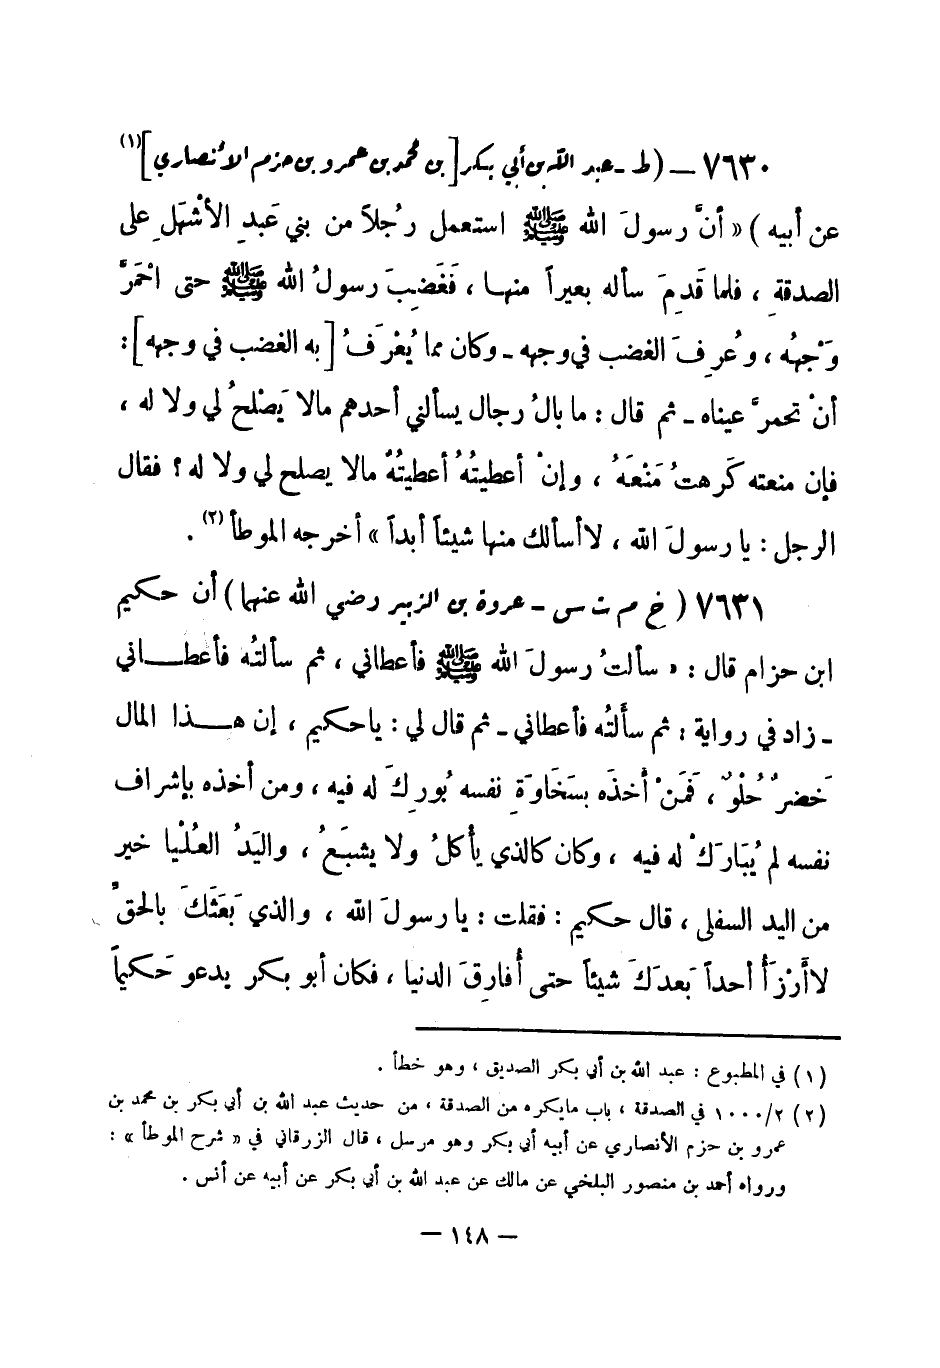 ٧٦٣٠ – (ط - عبد الله بن أبي بكر [بن محمد بن عمرو بن حزم الأنصاري](١)
عن أبيه) «أنَّ رسولَ الله ﷺ استعمل رجُلاً من بني عَبدِ الأشْهَلِ على
الصدقةِ ، فلما قَدِمَ سأله بعيراً منها ، فَغَضِبَ رسولُ الله ﷺ حتى احْمَرَّ
وَجْههُ ، وعُرِفَ الغضب في وجهه - وكان مما يُعْرَفُ [به الغضب في وجهه] :
أنْ تحمرَّ عيناه - ثم قال : ما بالُ رجال يسألني أحدهم مالا يَصْلحُ لي ولا له ،
فإن منعته كَرهتُ مَنْعَهُ ، وإنْ أعطيتُهُ أعطيتُهُ مالا يصلح لي ولا له ؟ فقال
الرجل : يا رسولَ الله ، لا أسألك منها شيئاً أبداً » أخرجه الموطأ (٢) .
٧٦٣١ (خ م ت س - عروة بن الزبير رضي الله عنهما) أن حكيم
ابن حزام قال : « سألتُ رسولَ الله ﷺ فأعطاني ، ثم سألتُه فأعطـــاني
- زاد في رواية : ثم سألتُه فأعطاني - ثم قال لي : يا حكيم ، إن هـــذا المال
خَضرٌ حُلْوٌ ، فَمَنْ أخذَه بسَخَاوَةِ نفسه بُورِكَ له فيه ، ومن أخذه بإشراف
نفسه لم يُبَارَكْ له فيه ، وكان كالذي يأكلُ ولا يشبَعُ ، واليَدُ العُلْيا خير
من اليد السفلى ، قال حكيم : فقلت : يا رسولَ الله ، والذي بَعَثَكَ بالحقِّ
لا أَرْزَأُ أحداً بَعدَكَ شيئاً حتى أُفارِقَ الدنيا ، فكان أبو بكر يدعو حَكيماً
(١) في المطبوع : عبد الله بن أبي بكر الصديق ، وهو خطأ .
(٢) ١٠٠٠/٢ في الصدقة ، باب مايكره من الصدقة ، من حديث عبد الله بن أبي بكر بن محمد بن
عمرو بن حزم الأنصاري عن أبيه أبي بكر وهو مرسل ، قال الزرقاني في « شرح الموطأ » :
ورواه أحمد بن منصور البلخي عن مالك عن عبد الله بن أبي بكر عن أبيه عن أنس .
– ١٤٨ –